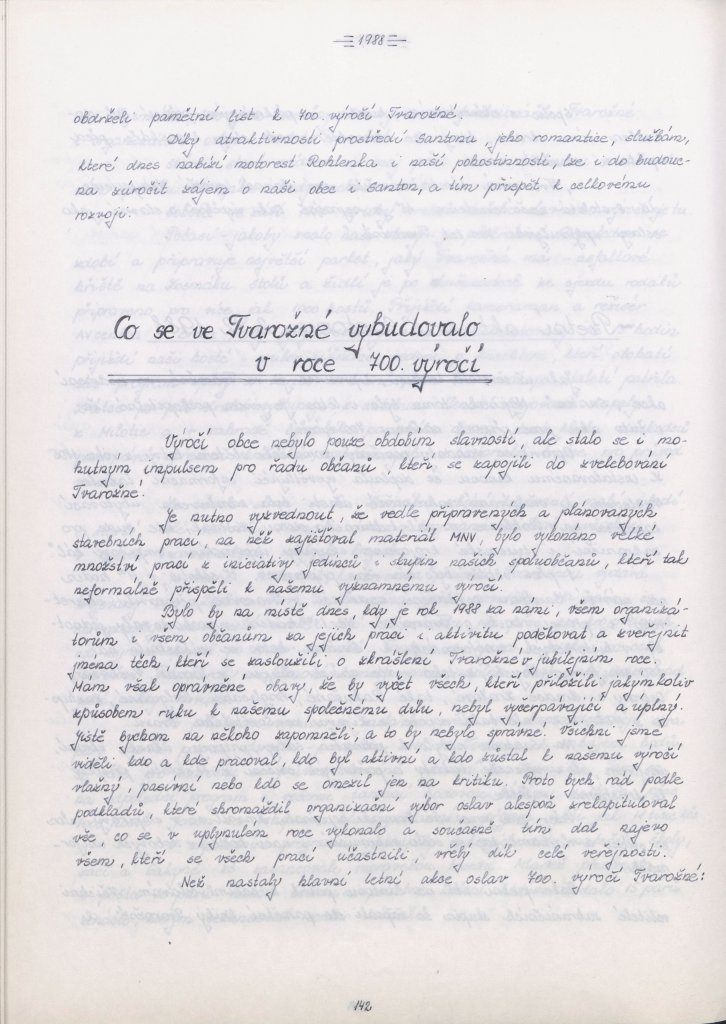 1988
obdrželi pamětní list k 700. výročí Tvarožné.
Díky atraktivnosti prostředí Santonu, jeho romantice, službám,
které dnes nabízí motorest Rohlenka i naší pohostinnosti, lze i do budouc-
na zúročit zájem o naši obec i Santon, a tím přispět k celkovému
rozvoji.
Co se ve Tvarožné vybudovalo
v roce 700. výročí
Výročí obce nebylo pouze obdobím slavností, ale stalo se i mo-
hutným impulsem pro řadu občanů, kteří se zapojili do zvelebování
Tvarožné.
Je nutno vyzvednout, že vedle připravených a plánovaných
stavebních prací, na něž zajišťoval materiál MNV, bylo vykonáno velké
množství prací z iniciativy jedinců i skupin našich spoluobčanů, kteří tak
neformálně přispěli k našemu významnému výročí.
Bylo by na místě dnes, kdy je rok 1988 za námi, všem organizá-
torům i všem občanům za jejich práci i aktivitu poděkovat a zveřejnit
jména těch, kteří se zasloužili o zkrášlení Tvarožné v jubilejním roce.
Mám však oprávněné obavy, že by výčet všech, kteří přiložili jakýmkoliv
způsobem ruku k našemu společnému dílu, nebyl vyčerpávající a úplný.
Jistě bychom na někoho zapomněli, a to by nebylo správné. Všichni jsme
viděli kdo a kde pracoval, kdo byl aktivní a kdo zůstal k našemu výročí
vlažný, pasivní nebo kdo se omezil jen na kritiku. Proto bych rád podle
podkladů, které shromáždil organizační výbor oslav alespoň zrelapituloval
vše, co se v uplynulém roce vykonalo a současně tím dal najevo
všem, kteří se všech prací účastnili, vřelý dík celé veřejnosti.
Než nastaly hlavní letní akce oslav 700. výročí Tvarožné:
142